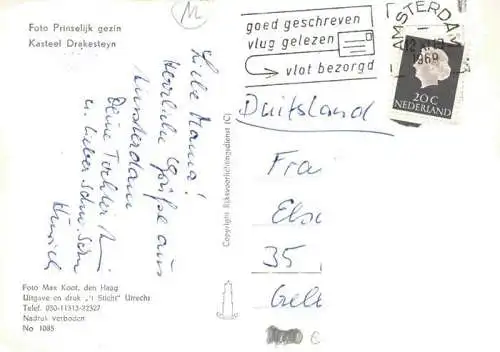 Foto Prinselijk gezin
Kasteel Drakesteyn
M
goed geschreven
vlug gelezen
vlot bezorgd
AMSTERDAM
1969
20C
NEDERLAND
Liebe Mama!
Herzliche Grüße aus
Amsterdam
Deine Tochter
u. lieber Schw.Sohn
Duitsland
Frau
Else
35
Copyright Rijksvoorlichtingsdienst (C)
Foto Max Koot, den Haag
Uitgave en druk „'t Sticht" Utrecht
Telef. 030-11313-22327
Nadruk verboden
No 1085